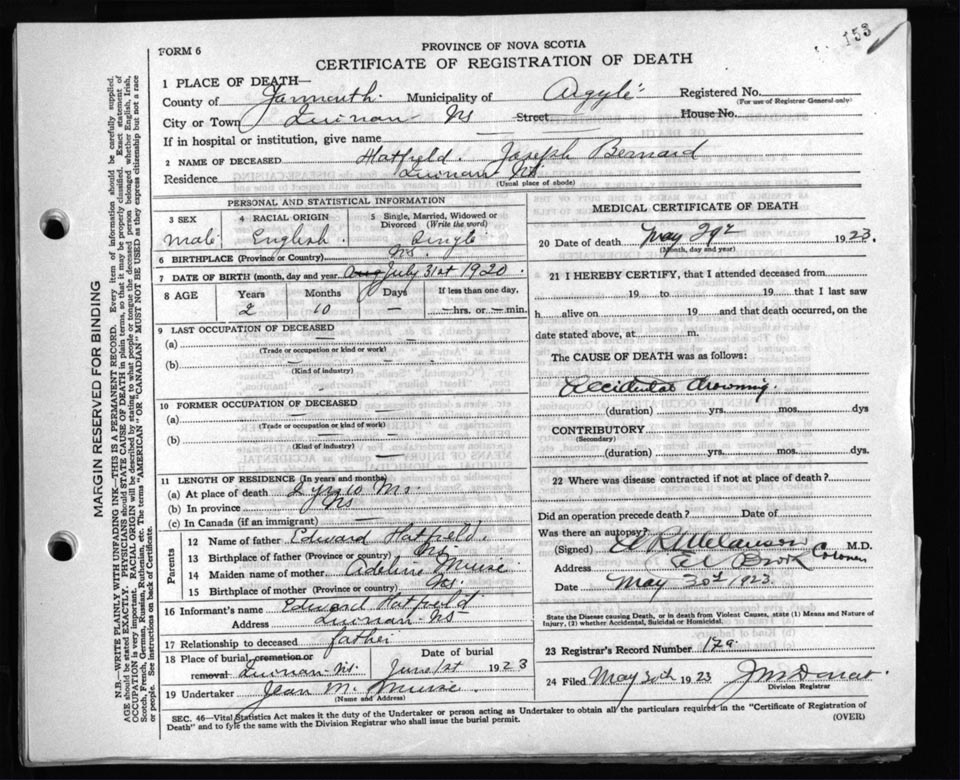 153
FORM 6
PROVINCE OF NOVA SCOTIA
CERTIFICATE OF REGISTRATION OF DEATH
1 PLACE OF DEATH—
County of Yarmouth Municipality of Argyle Registered No.
(For use of Registrar General only)
City or Town Quinan NS Street — House No.
If in hospital or institution, give name —
2 NAME OF DECEASED Hatfield. Joseph Bernard
Residence Quinan NS.
(Usual place of abode)
PERSONAL AND STATISTICAL INFORMATION
3 SEX 4 RACIAL ORIGIN 5 Single, Married, Widowed or Divorced (Write the word)
Male English. Single
6 BIRTHPLACE (Province or Country) NS.
7 DATE OF BIRTH (month, day and year) Aug July 31st 1920.
8 AGE Years Months Days If less than one day,
2 10 — — hrs. or — min.
9 LAST OCCUPATION OF DECEASED
(a) —
(Trade or occupation or kind or work)
(b) —
(Kind of industry)
10 FORMER OCCUPATION OF DECEASED
(a) —
(Trade or occupation or kind of work)
(b) —
(Kind of industry)
11 LENGTH OF RESIDENCE (In years and months)
(a) At place of death 2 yrs 10 Ms
(b) In province NS
(c) In Canada (if an immigrant) —
Parents
12 Name of father Edward Hatfield.
13 Birthplace of father (Province or country) NS
14 Maiden name of mother Adeline Muise
15 Birthplace of mother (Province or country) NS.
16 Informant's name Edward Hatfield
Address Quinan NS
17 Relationship to deceased father
18 Place of burial cremation or removal Quinan NS. Date of burial June 1st 1923
19 Undertaker Jean M. Muise.
(Name and Address)
MEDICAL CERTIFICATE OF DEATH
20 Date of death May 29th 1923.
(Month, day and year)
21 I HEREBY CERTIFY, that I attended deceased from
19 to 19 that I last saw
h alive on 19 and that death occurred, on the
date stated above, at m.
The CAUSE OF DEATH was as follows:
Accidental drowning.
(duration) yrs. mos. dys
CONTRIBUTORY
(Secondary)
(duration) yrs. mos. dys.
22 Where was disease contracted if not at place of death?
Did an operation precede death? Date of
Was there an autopsy?
(Signed) M.D.
Coroner
Address Brook
Date May 30th 1923.
State the Disease causing Death, or in death from Violent Causes, state (1) Means and Nature of
Injury, (2) whether Accidental, Suicidal or Homicidal.
23 Registrar's Record Number 17a.
24 Filed May 30th 1923
Division Registrar
SEC. 46—Vital Statistics Act makes it the duty of the Undertaker or person acting as Undertaker to obtain all the particulars required in the "Certificate of Registration of
Death" and to file the same with the Division Registrar who shall issue the burial permit. (OVER)
MARGIN RESERVED FOR BINDING
N.B.—WRITE PLAINLY WITH UNFADING INK—THIS IS A PERMANENT RECORD. Every item of information should be carefully supplied.
AGE should be stated EXACTLY. PHYSICIANS should STATE CAUSE OF DEATH in plain terms, so that it may be properly classified. Exact statement of
OCCUPATION is very important. RACIAL ORIGIN will be described by stating to what people or tongue the deceased person belonged whether English, Irish,
Scotch, French, German, Russian, Ruthenian, etc. The terms "AMERICAN" OR "CANADIAN" MUST NOT BE USED as they express citizenship but not a race
or people. See instructions on back of Certificate.